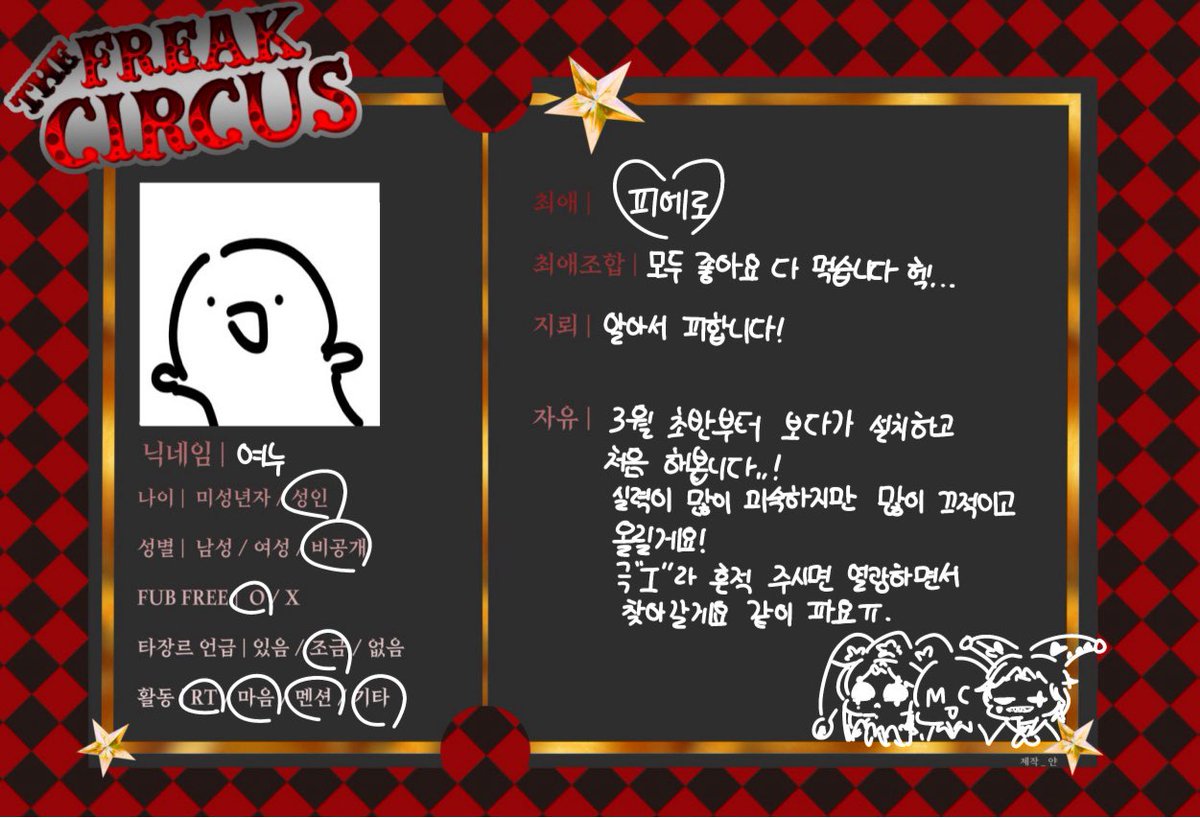 THE FREAK CIRCUS
닉네임 | 여누
나이 | 미성년자 / 성인
성별 | 남성 / 여성 / 비공개
FUB FREE | O / X
타장르 언급 | 있음 / 조금 / 없음
활동 | RT / 마음 / 멘션 / 기타
최애 | 피에로
최애조합 | 모두 좋아요 다 먹습니다 헉!...
지뢰 | 알아서 피합니다!
자유 | 3월 초반부터 보다가 설치하고
처음 해봅니다..!
실력이 많이 미숙하지만 많이 끄적이고
올릴게요!
극"I"라 흔적 주시면 열광하면서
찾아갈게요 같이 파요ㅠ.
MC
제작_얀